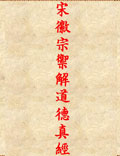 宋徽宗禦解道德真經